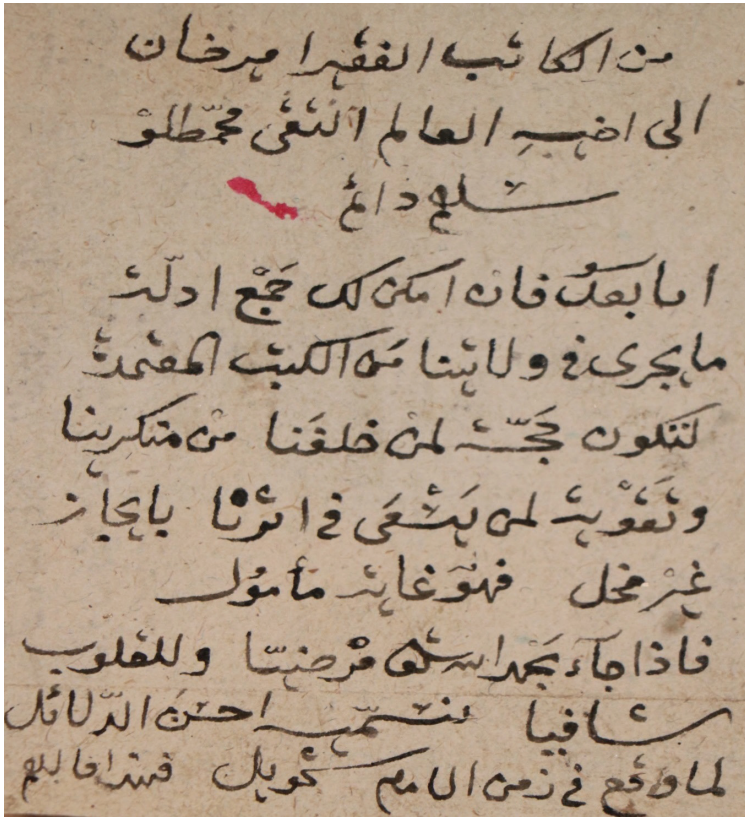 من الكاتب الفقير امرخان
الى اخيه العالم التقى محمد طلو
سلام دائم
اما بعد فان امكن لك جمع ادلة
ما يجرى فى ولايتنا من الكتب المعتمدة
لتكون حجة لمن خلفنا من منكرينا
وتقوية لمن يسعى فى اثرنا بايجاز
غير مخل فهو غاية مأمول
فاذا جاء بحمد الله مرضيا وللقلوب
شافيا نسميه احسن الدلائل
لما وقع فى زمن الامام شمويل